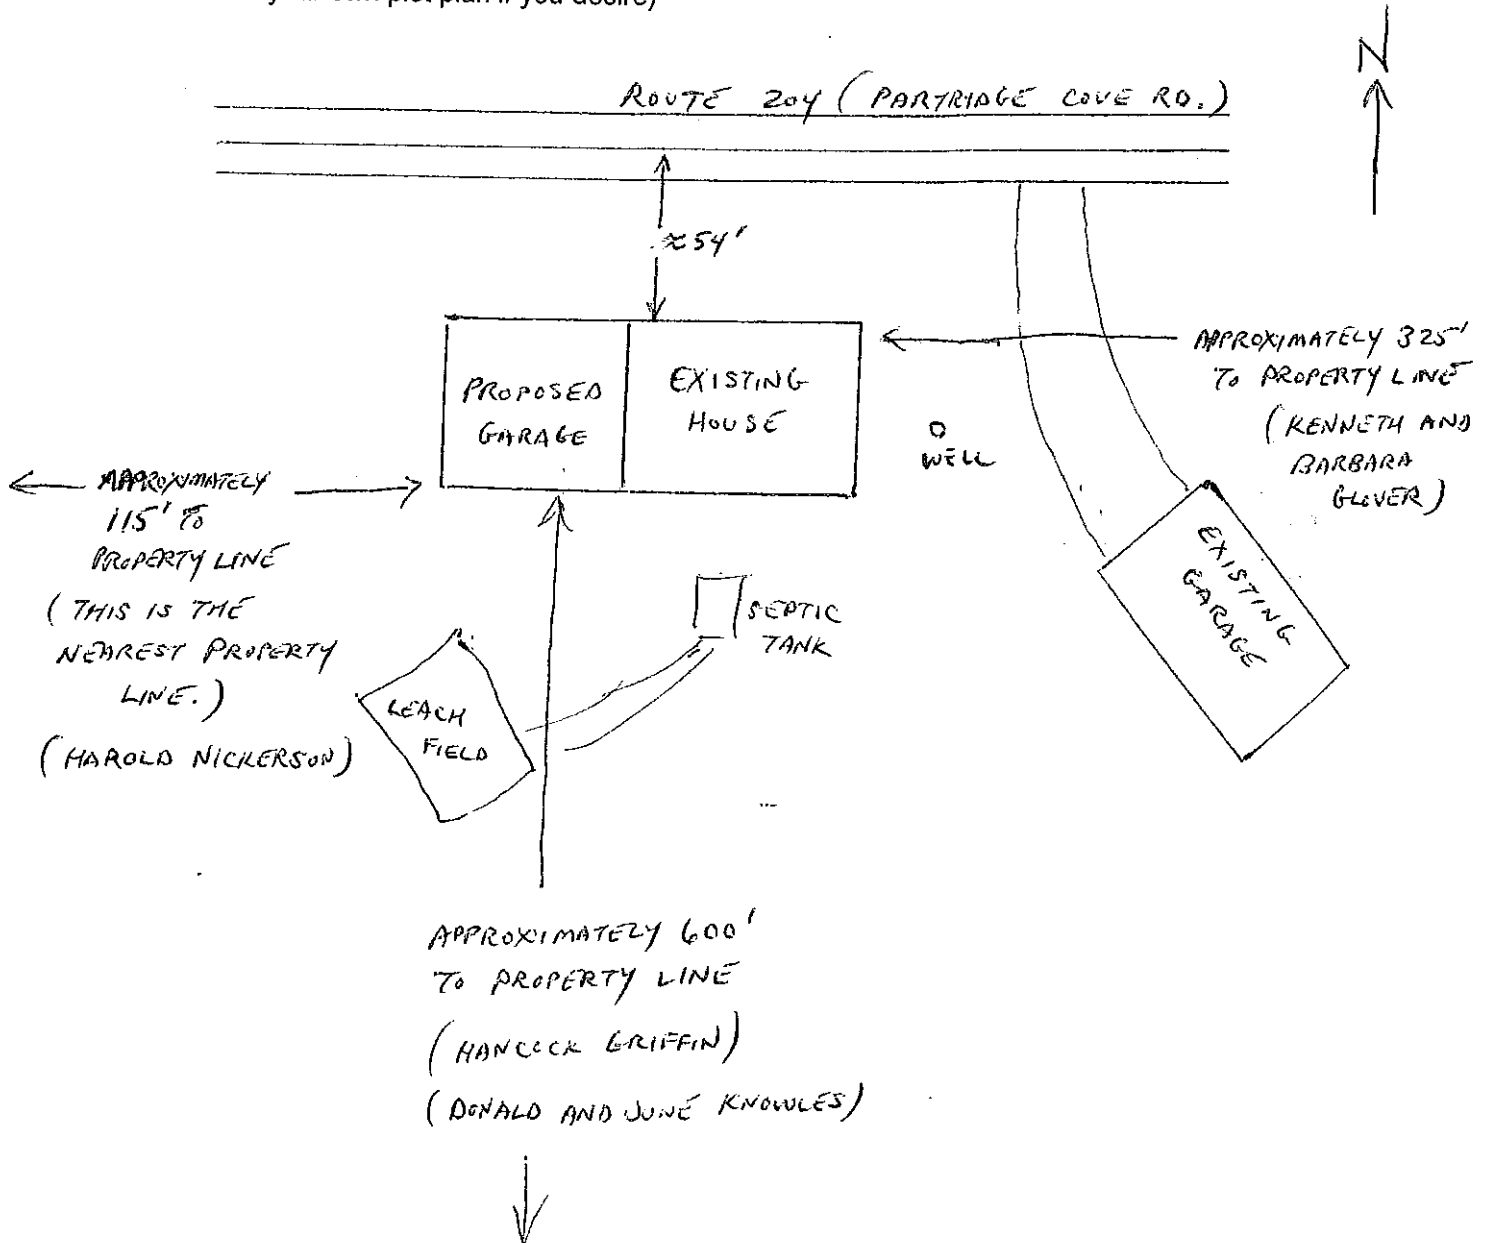 plot plan if you desire)
N
ROUTE 204 (PARTRIDGE COVE RD.)
≈54'
PROPOSED
GARAGE
EXISTING
HOUSE
WELL
APPROXIMATELY 325'
TO PROPERTY LINE
(KENNETH AND
BARBARA
GLOVER)
APPROXIMATELY
115' TO
PROPERTY LINE
(THIS IS THE
NEAREST PROPERTY
LINE.)
(HAROLD NICKERSON)
EXISTING
GARAGE
SEPTIC
TANK
LEACH
FIELD
APPROXIMATELY 600'
TO PROPERTY LINE
(HANCOCK GRIFFIN)
(DONALD AND JUNE KNOWLES)